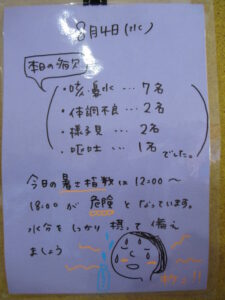 8月4日(水)
本日の病欠
・咳、鼻水…7名
・体調不良…2名
・様子見…2名
・嘔吐…1名でした。
今日の暑さ指数は12:00〜
18:00が危険となっています。
水分をしっかり摂って備え
ましょう